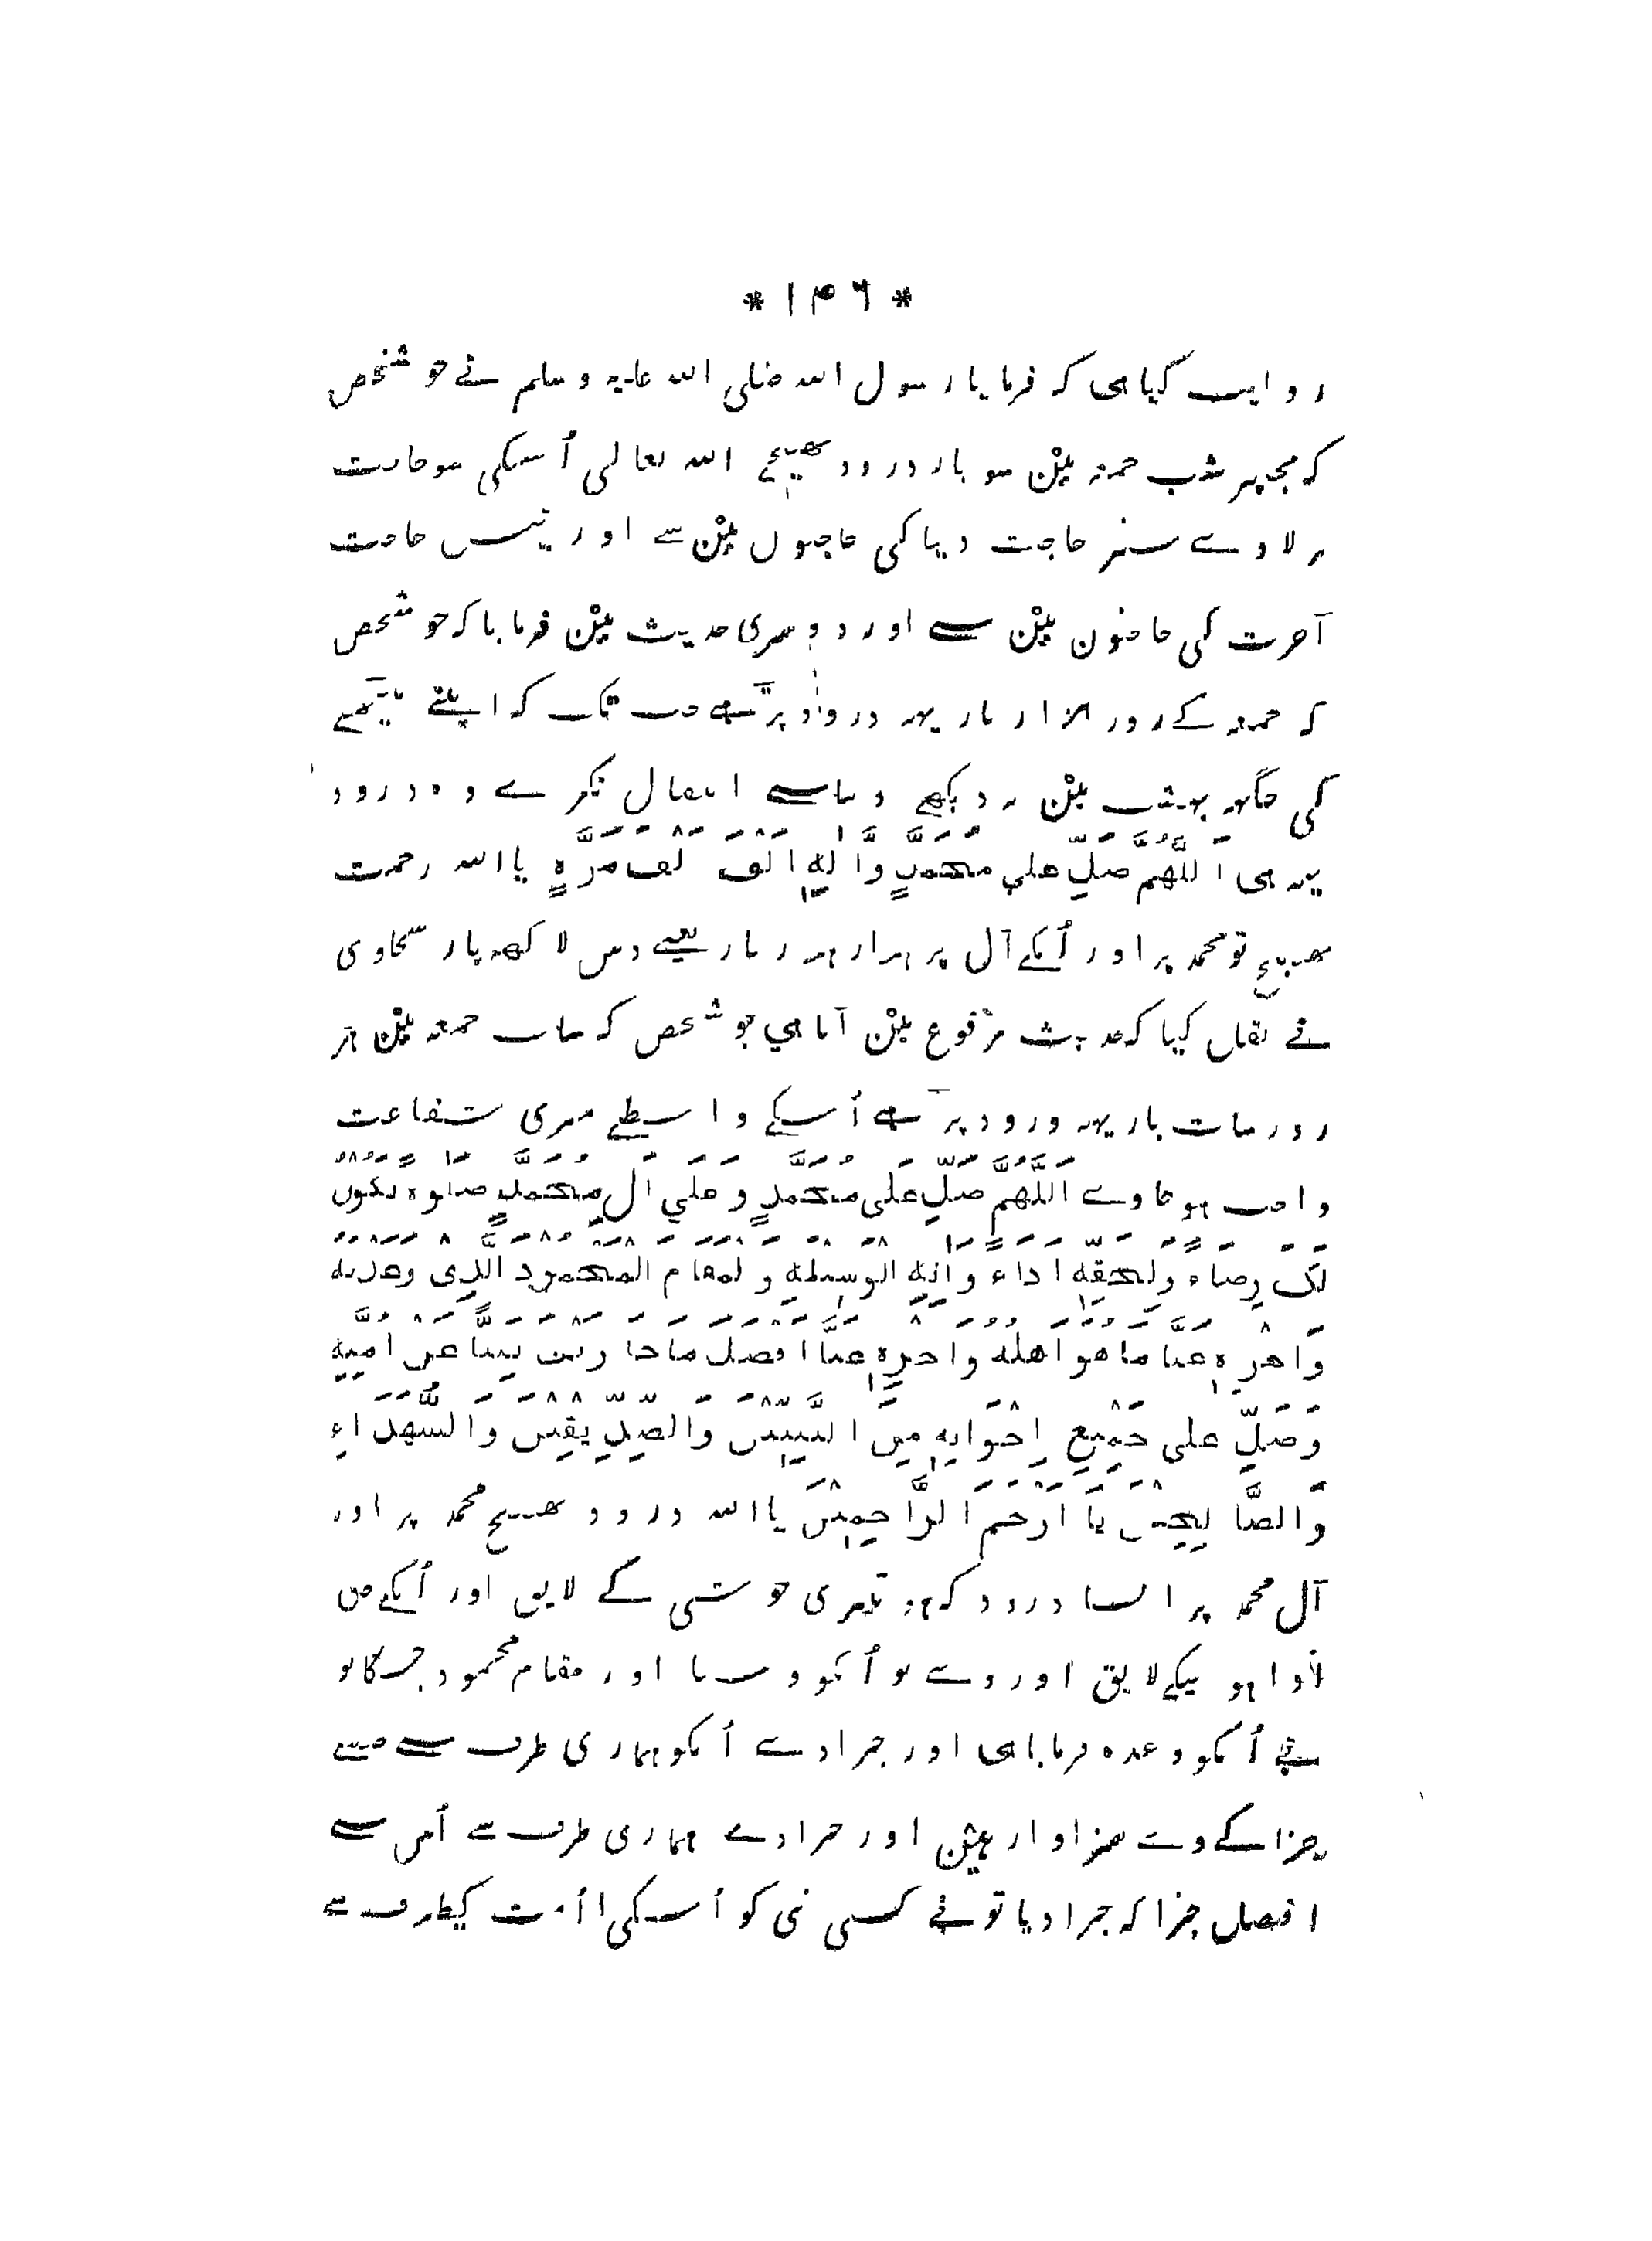 * ۱۴۶ *
روایت کیاہی کہ فرمایا رسول اللہ صلی اللہ علیہ وسلم نے جو شخص
کہ مجہپر شب جمعہ میْن سو بار درود بھیجے اللہ تعالی اُسکی سو حاجت
بر لاوے ستر حاجت دنیا کی حاجتوں میْن سے اور تیس حاجت
آخرت کی حاجتون میْن سے اور دوسری حدیث میْن فرمایا کہ جو شخص
کہ جمعہ کے روز ہزار بار یہہ درود پڑھے جب تک کہ اپنے بیٹھنے
کی جگہہ بہشت میْن نہ دیکھے دنیاسے انتقال نکرے وہ درود
یہہ ہی اَللّٰهُمَّ صَلِّ عَلٰى مُحَمَّدٍ وَّاٰلِهٖ اَلْفَ اَلْفَ مَرَّةٍ یا اللہ رحمت
بھیج تو محمد پر اور اُنکے آل پر ہزار ہزار بار یعنے دس لاکھہ بار سخاوی
نے نقل کیا کہ حدیث مرفوع میْن آیا ہی جو شخص کہ سات جمعہ میْن ہر
روز سات بار یہہ درود پڑھے اُسکے واسطے میری شفاعت
واجب ہو جاوے اَللّٰهُمَّ صَلِّ عَلٰى مُحَمَّدٍ وَّعَلٰى اٰلِ مُحَمَّدٍ صَلٰوةً تَكُوْنُ
لَكَ رِضَاءً وَّلِحَقِّهٖ اَدَاءً وَّاٰتِهِ الْوَسِيْلَةَ وَالْمَقَامَ الْمَحْمُوْدَ الَّذِىْ وَعَدْتَهٗ
وَاجْزِهٖ عَنَّا مَا هُوَ اَهْلُهٗ وَاجْزِهٖ عَنَّا اَفْضَلَ مَا جَازَيْتَ نَبِيًّا عَنْ اُمَّتِهٖ
وَصَلِّ عَلٰى جَمِيْعِ اِخْوَانِهٖ مِنَ النَّبِيِّيْنَ وَالصِّدِّيْقِيْنَ وَالشُّهَدَاءِ
وَالصَّالِحِيْنَ يَا اَرْحَمَ الرَّاحِمِيْنَ یا اللہ درود بھیج محمد پر اور
آل محمد پر ایسا درود کہ ہو تیری خوشی کے لایق اور اُنکے حق
ادا ہونیکے لایق اور دے تو اُنکو وسیلہ اور مقام محمود جسکا تو
نے اُنکو وعدہ فرمایا ہی اور جزا دے اُنکو ہماری طرف سے جیسے
جزا کے وے سزاوار ہیْن اور جزا دے ہماری طرف سے اُس سے
افضل جزا کہ جزا دیا تو نے کسی نبی کو اُسکی اُمت کیطرف سے